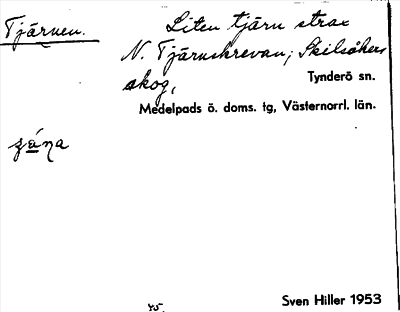 Tjärnen. Liten tjärn strax
N. Tjärnskrevan; Skilsåkers
skog, Tynderö sn.
Medelpads ö. doms. tg, Västernorrl. län.
Sven Hiller 1953